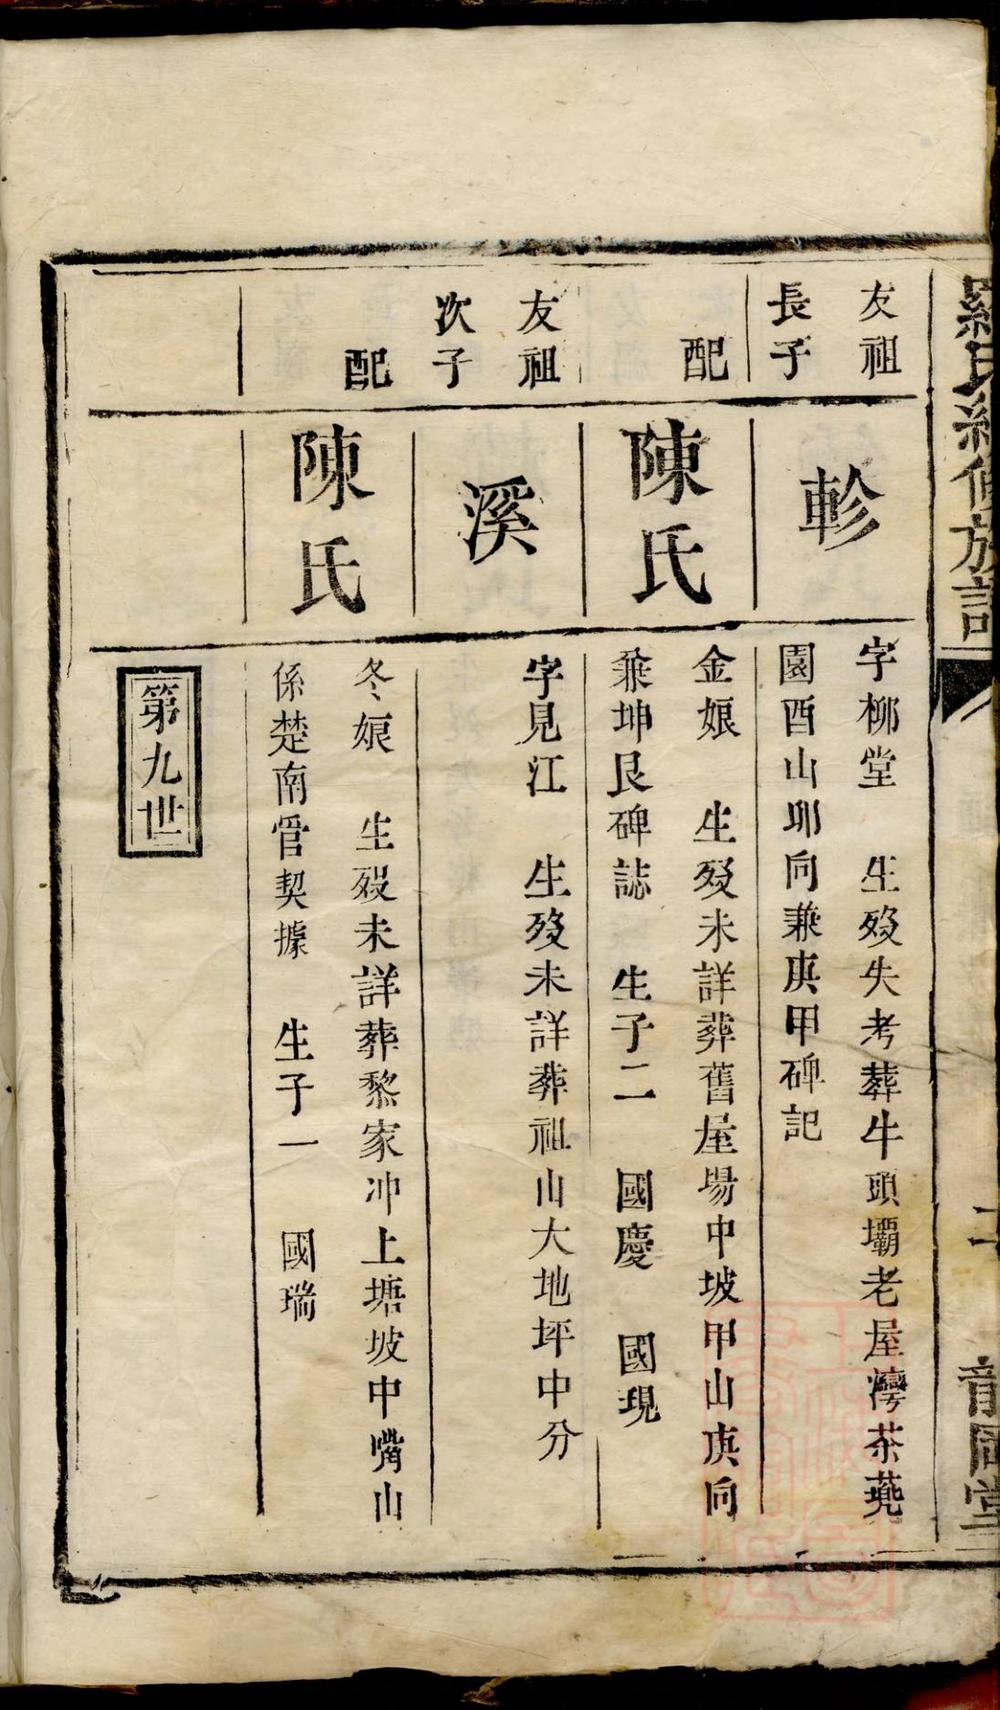 羅氏續修族譜
友祖
長子
軫
字柳堂 生歿失考葬牛頭壩老屋灣茶蕘
園酉山卯向兼庚甲碑記
配
陳氏
金娘 生歿未詳葬舊屋場中坡甲山庚向
兼坤艮碑誌 生子二 國慶 國現
友祖
次子
溪
字見江 生歿未詳葬祖山大地坪中分
配
陳氏
冬娘 生歿未詳葬黎家冲上塘坡中嘴山
係楚南管契據 生子一 國瑞
第九世